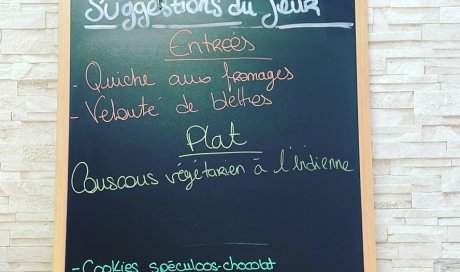 Suggestions du jour
Entrées
- Quiche aux fromages
- Velouté de blettes
Plat
Couscous végétarien à l'indienne
- Cookies spéculoos-chocolat